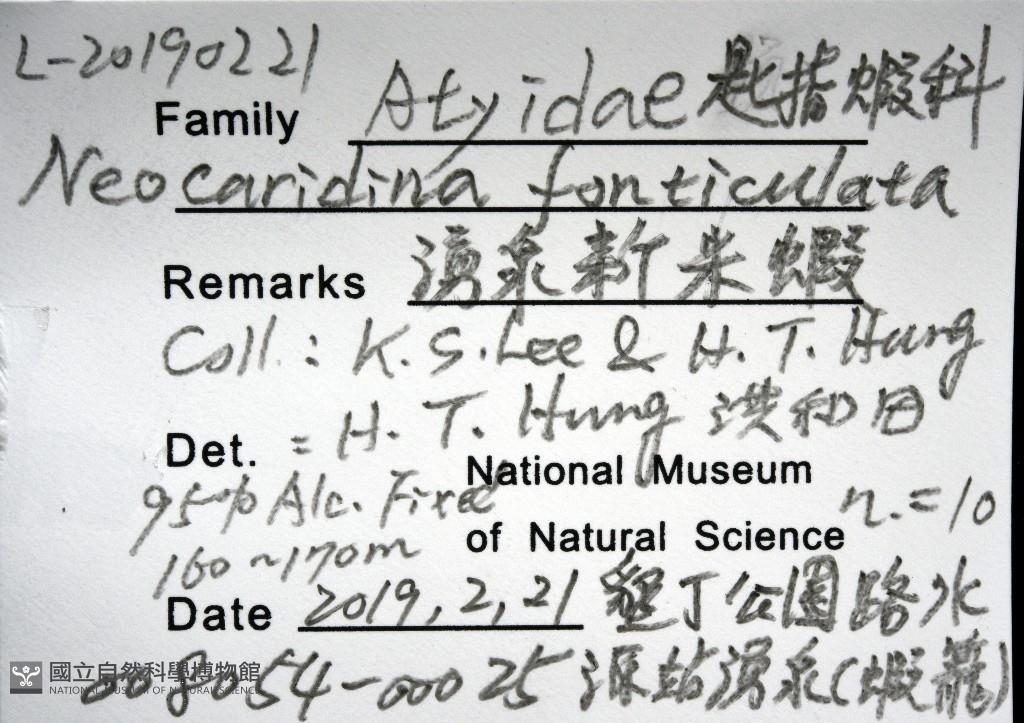 L-20190221
Family Atyidae 匙指蝦科
Neocaridina fonticulata
Remarks 湧泉新米蝦
Coll.: K.S.Lee & H.T.Hung
Det. = H.T.Hung 洪和田
National Museum
95% Alc. Fixed n.=10
of Natural Science
160~170m
Date 2019,2,21 墾丁公園路水
54-00025 源站湧泉(蝦籠)
國立自然科學博物館
NATIONAL MUSEUM OF NATURAL SCIENCE